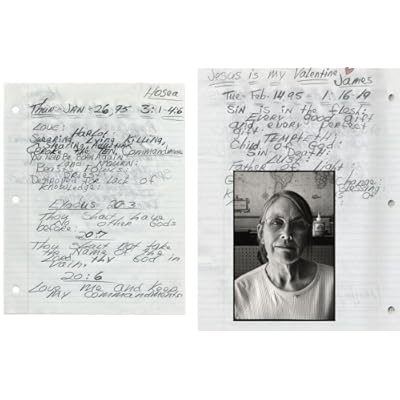 Hosea
Thur-JAN-26,95 3:1-4:6
Love: Harlot
Swearing, Lying, Killing,
Stealing
Broke The Ten Commandments
You need be born again
and mourn
Beasts, Fowls:
Destroyed for lack of
Knowledge:
Exodus 20:3
Thou Shalt have
before: other Gods
20:7
Thou Shalt not take
the Name of the
Lord thy God in
Vain:
20:6
Love me and keep
My Commandments
Jesus is my Valentine
James
Tue-Feb-14 95- 1:16-19
Sin is in the flesh:
Every good gift
and every perfect
gift
TEMPT:
Child of God:
Sin Death:
LUST:
Father of Light:
Change:
of